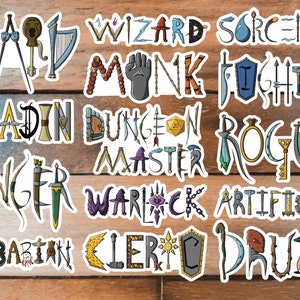 ARD
WIZARD
SORCER
MONK
FIGHT
ADIN
DUNGEON
MASTER
ROGU
NGER
WARLOCK
ARTIFI
BARIAN
CLERIC
DRUI